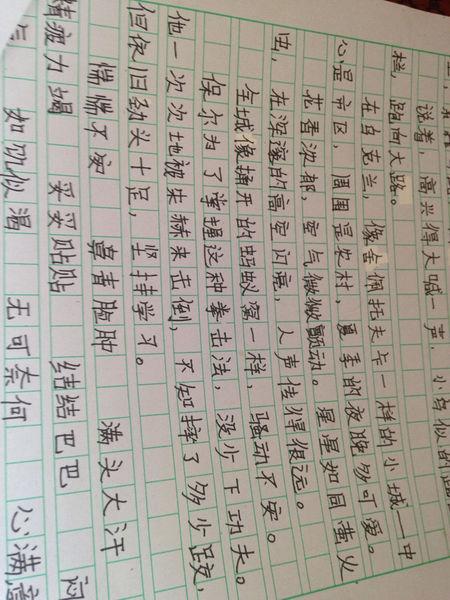 说着，高兴得大喊一声，小鸟似的
栏，跑向大路。
在乌克兰，像舍佩托夫卡一样的小城——中
心是市区，周围是农村，夏季的夜晚够可爱。
花香浓郁，空气微微颤动。星星如同萤火
虫，在深邃的高空闪亮，人声传得很远。
全城像捅开的蚂蚁窝一样，骚动不安。
保尔为了掌握这种拳击法，没少下功夫。
他一次次地被朱赫来击倒，不知摔了多少跤，
但依旧劲头十足，坚持学习。
惴惴不安 鼻青脸肿 满头大汗 闷
精疲力竭 妥妥贴贴 结结巴巴
如饥似渴 无可奈何 心满意